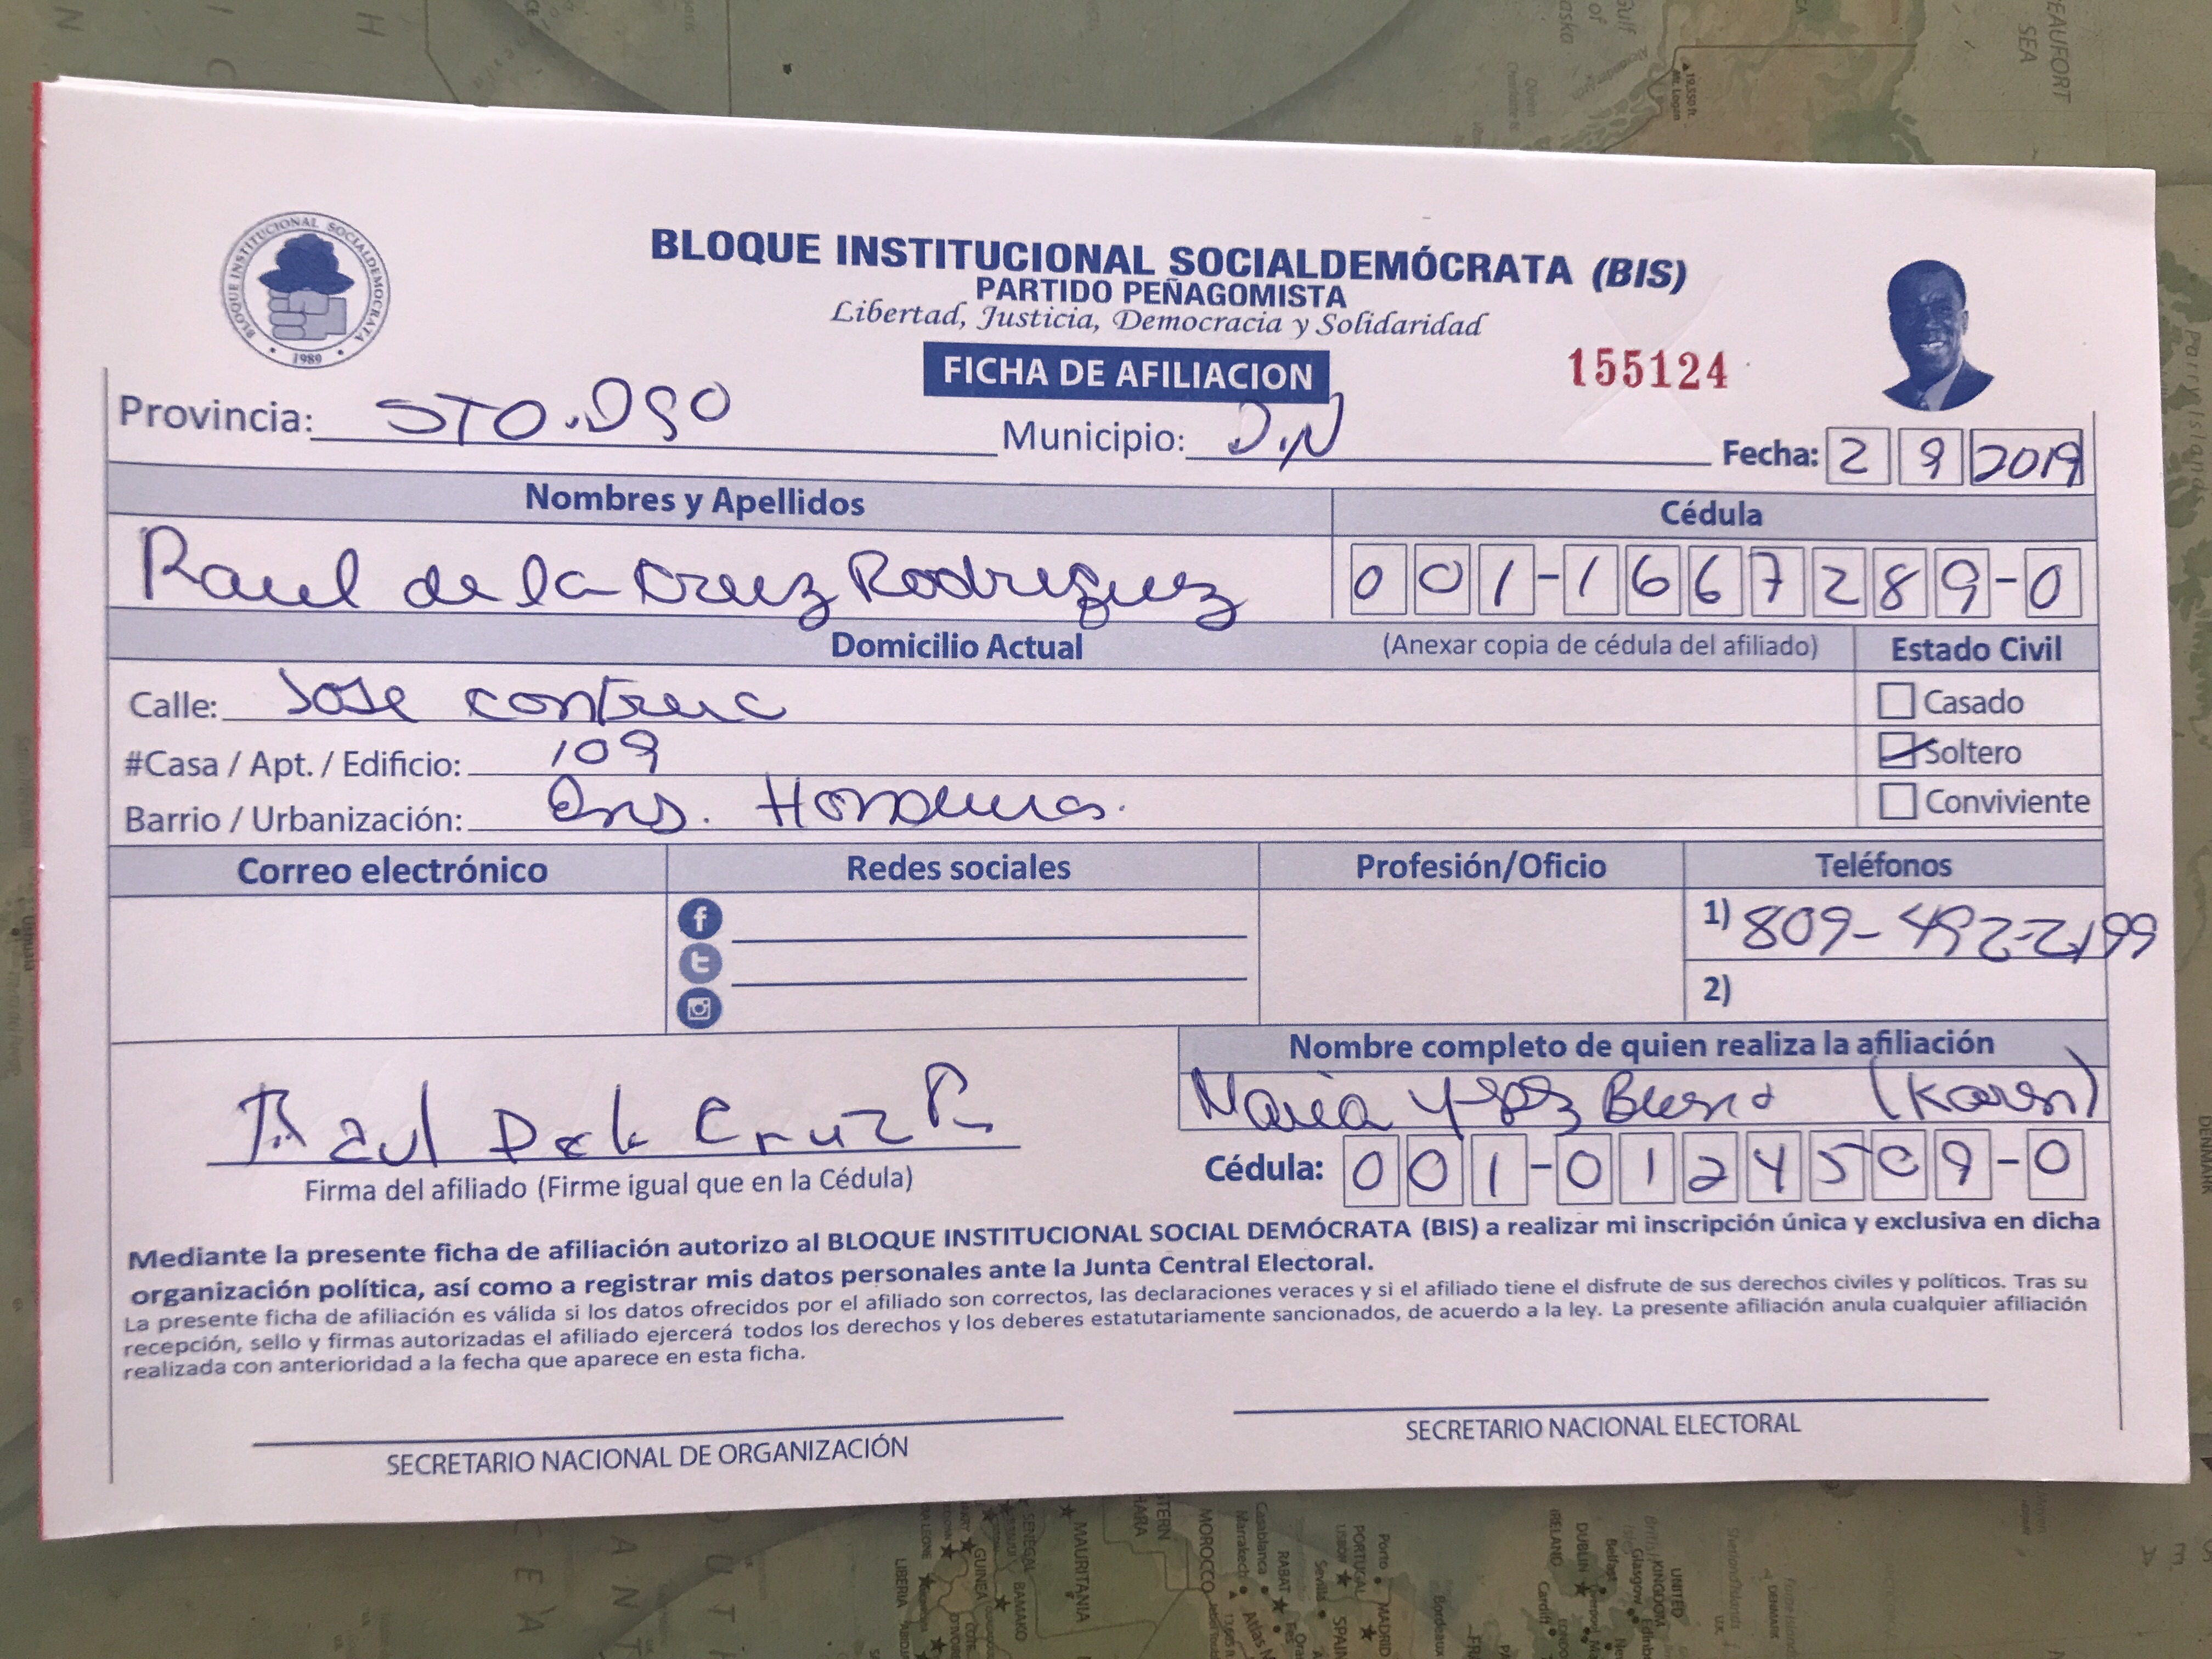 BLOQUE INSTITUCIONAL SOCIALDEMOCRATA
1989
BLOQUE INSTITUCIONAL SOCIALDEMÓCRATA (BIS)
PARTIDO PEÑAGOMISTA
Libertad, Justicia, Democracia y Solidaridad
FICHA DE AFILIACION
155124
Provincia: STO. DGO Municipio: D.N Fecha: 2 9 2019
Nombres y Apellidos Cédula
Raul de la Cruz Rodriguez 001-1667289-0
Domicilio Actual (Anexar copia de cédula del afiliado) Estado Civil
Calle: Jose contrera Casado
#Casa / Apt. / Edificio: 109 Soltero
Barrio / Urbanización: Ens. Honduras. Conviviente
Correo electrónico Redes sociales Profesión/Oficio Teléfonos
1) 809-492-2199
2)
Nombre completo de quien realiza la afiliación
Maria Bueno (Karen)
Raul De la Cruz R.
Cédula: 001-0124509-0
Firma del afiliado (Firme igual que en la Cédula)
Mediante la presente ficha de afiliación autorizo al BLOQUE INSTITUCIONAL SOCIAL DEMÓCRATA (BIS) a realizar mi inscripción única y exclusiva en dicha
organización política, así como a registrar mis datos personales ante la Junta Central Electoral.
La presente ficha de afiliación es válida si los datos ofrecidos por el afiliado son correctos, las declaraciones veraces y si el afiliado tiene el disfrute de sus derechos civiles y políticos. Tras su
recepción, sello y firmas autorizadas el afiliado ejercerá todos los derechos y los deberes estatutariamente sancionados, de acuerdo a la ley. La presente afiliación anula cualquier afiliación
realizada con anterioridad a la fecha que aparece en esta ficha.
SECRETARIO NACIONAL DE ORGANIZACIÓN
SECRETARIO NACIONAL ELECTORAL
BEAUFORT SEA
Parry Islands
DENMARK
LIBERIA
GUINEA
SENEGAL
BAMAKO
MAURITANIA
MOROCCO
Marrakech
Casablanca
RABAT
Sevilla
LISBON
PORTUGAL
Porto
MADRID
SPAIN
Bordeaux
IRELAND
DUBLIN
Cardiff
Belfast
Glasgow
UNITED KINGDOM